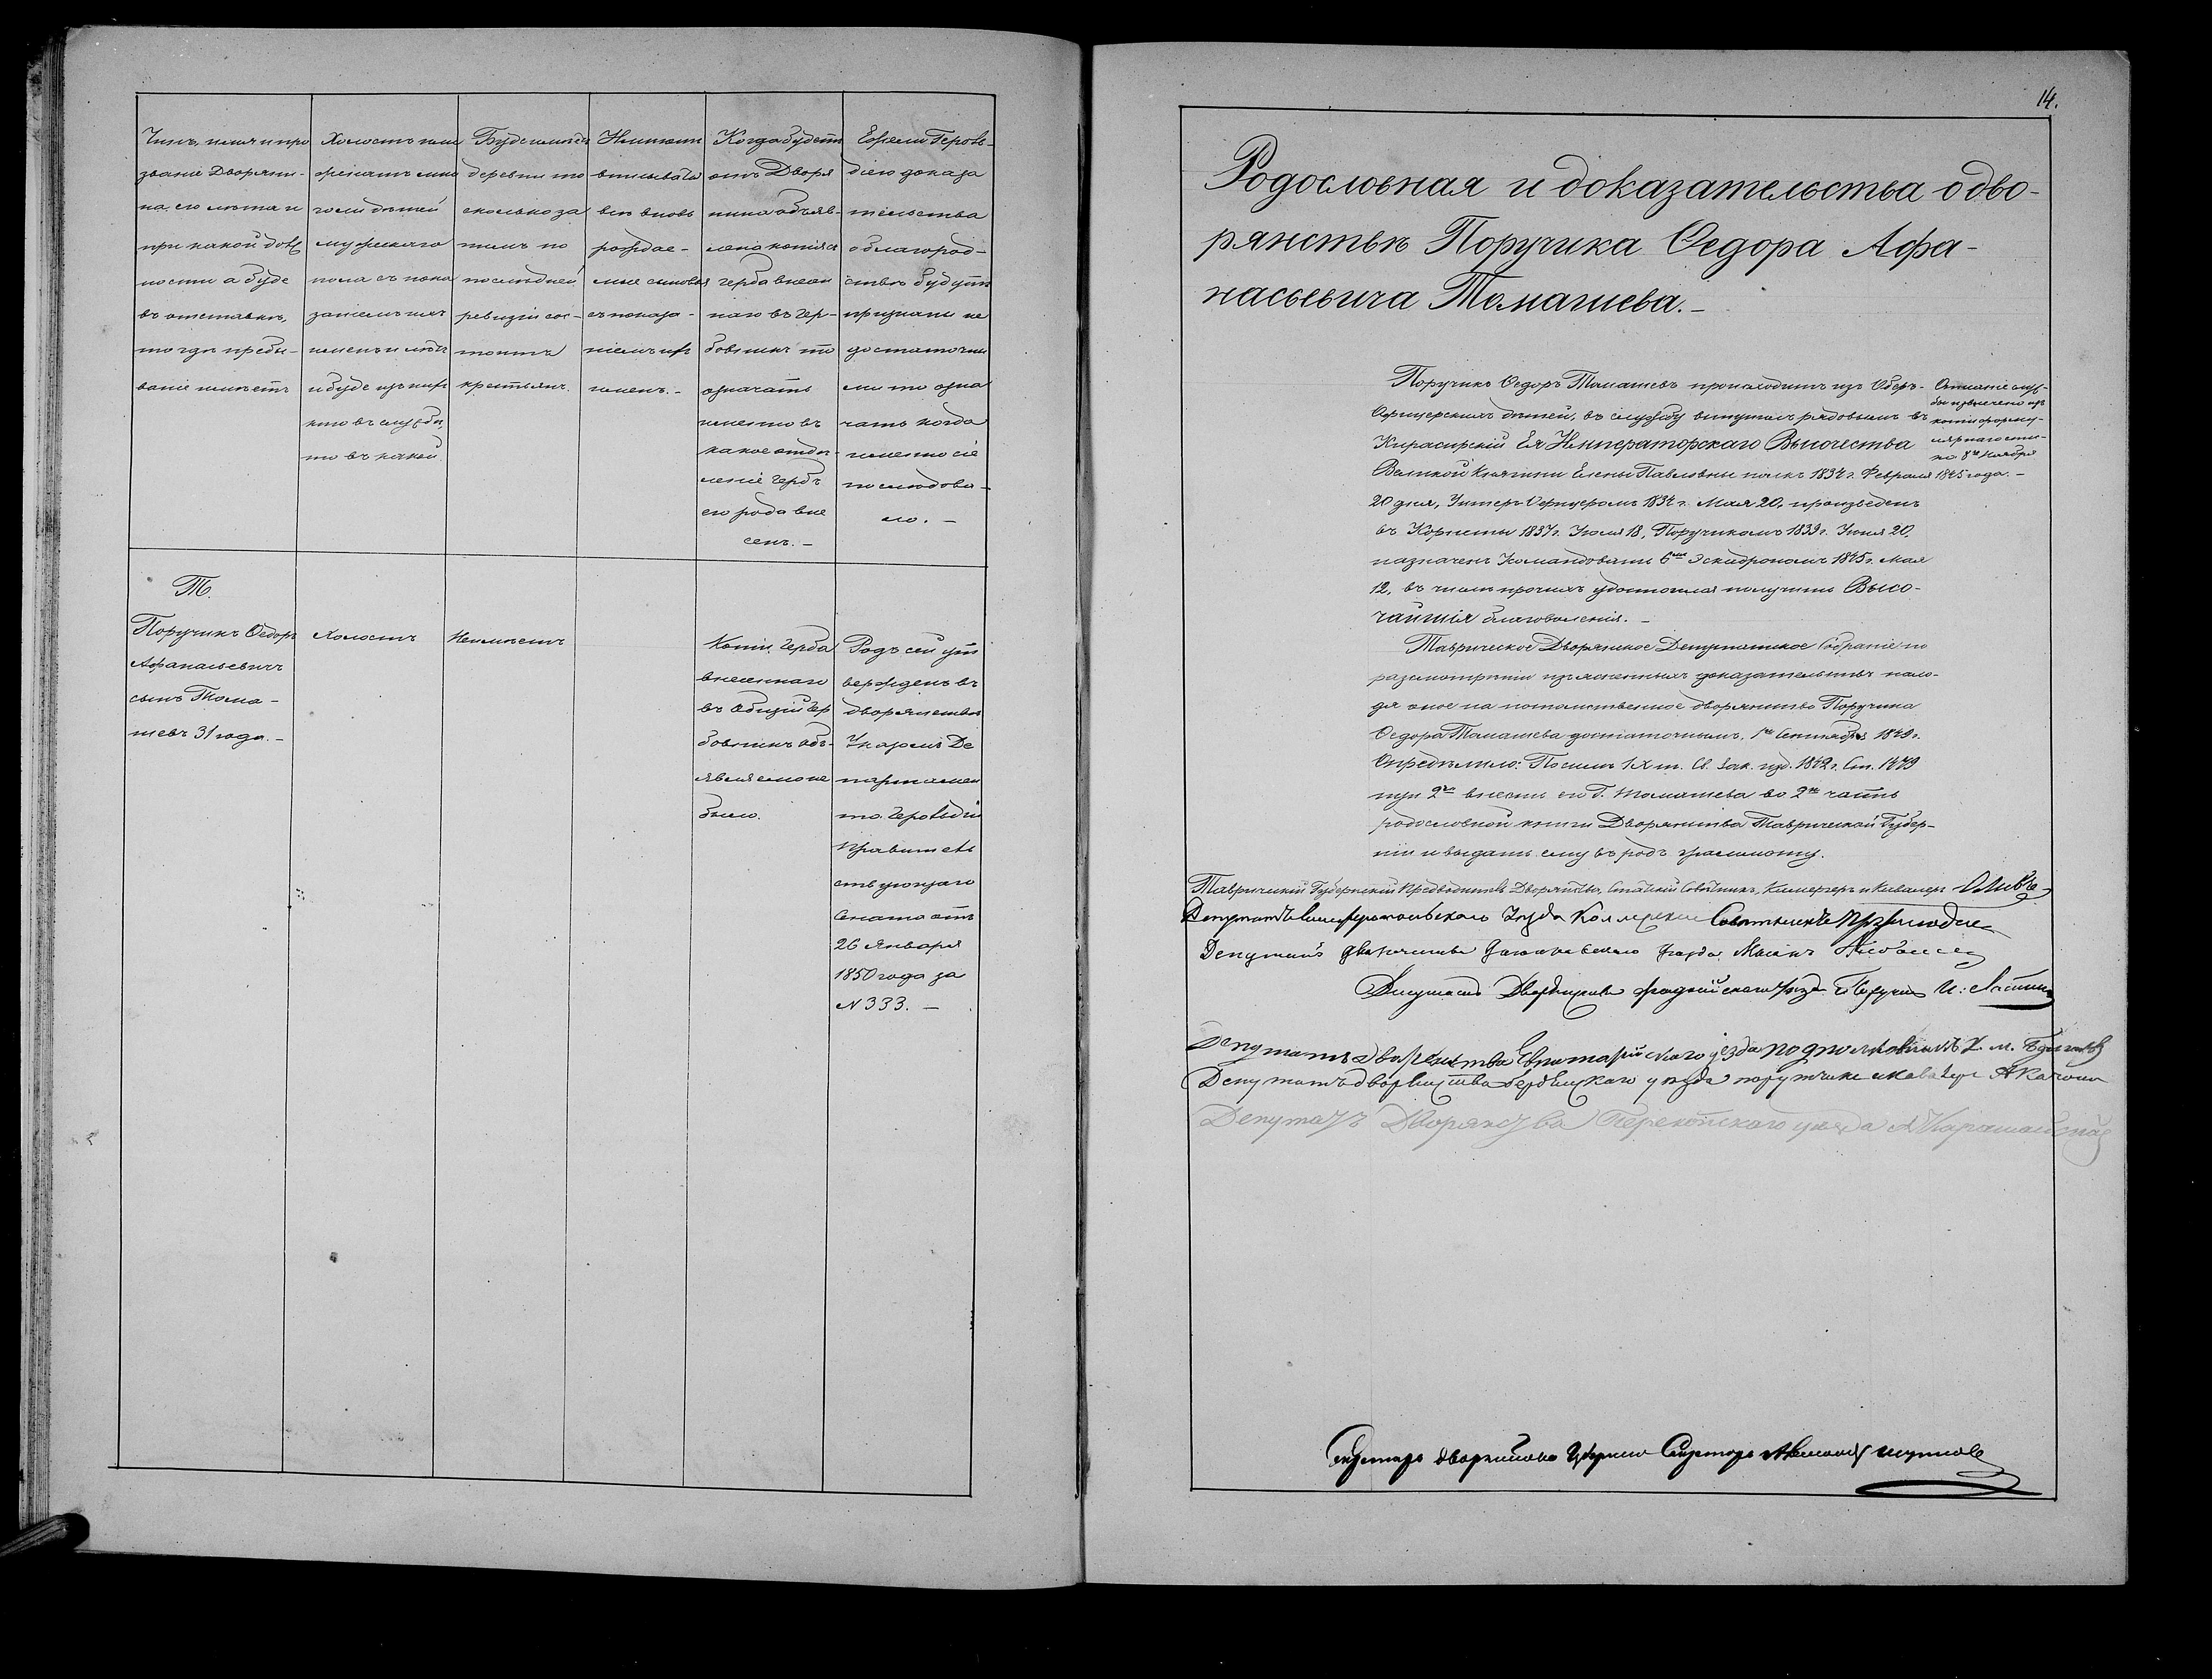 Чинъ, имя и про
званіе Дворяни-
на, его лѣта и
при какой долж
ности а буде
въ отставкѣ,
то гдѣ пребы-
ваніе имѣетъ
Холостъ или
женатъ мно
голи дѣтей
мужескаго
пола съ пока
заніемъ ихъ
именъ и лѣтъ
и буде изъ нихъ
кто въ службѣ,
то въ какой.
Буде имѣетъ
деревни то
сколько за
нимъ по
послѣдней
ревизіи сос-
тоитъ
крестьянъ.
вписывать
всѣ вновь
рождае-
мые сыновья
съ показа-
ніемъ ихъ
именъ.-
Когда будетъ
отъ Дворя
нина объяв-
лена копія съ
герба внесен
наго въ Гер-
бовникъ то
означать
именно въ
какое отдѣ-
леніе гербъ
его рода вне
сенъ.-
Ежели Героль-
діею доказа
тельства
о благород-
ствѣ будутъ
признаны не
достаточны
ми то озна
чать когда
именно сіе
последова-
ло.-
Т.
Поручикъ Ѳедоръ
Афанасьевичъ
сынъ Тома-
шевъ 31 года.-
Холостъ
Неимѣетъ
Копіи герба
внесеннаго
въ Общій Гер
бовникъ объ-
являемо не
было.
Родъ сей ут
вержденъ въ
дворянствѣ
Указомъ Де
партамен
та Герольдіи
Правитель
ствующаго
Сената отъ
26 Января
1850 года за
N 333.-
14.
Родословная и доказательства о дво-
рянствѣ Поручика Ѳедора Афа-
насьевича Томашева.-
Поручикъ Ѳедоръ Томашевъ происходитъ изъ Оберъ-
Офицерскихъ дѣтей, въ службу вступилъ рядовымъ въ
Кирасирскій Ея Императорскаго Высочества
Великой Княгини Елены Павловны полкъ 1834 г. Февраля
20 дня, Унтеръ Офицеромъ 1834 г. Мая 20, произведенъ
въ Корнеты 1837 г. Іюля 18, Поручикомъ 1839 г. Іюня 20,
назначенъ Командовать 6мъ Эскадрономъ 1845 г. Мая
12, въ числѣ прочихъ удостоился получить Высо-
чайшія благоволенія.-
Описаніе служ-
бы извлечено изъ
копіи форму-
лярнаго спи-
ска 8го Ноября
1845 года.-
Таврическое Дворянское Депутатское Собраніе по
разсмотрѣніи изъясненныхъ доказательствъ нахо-
дя оное на потомственное дворянство Поручика
Ѳедора Томашева достаточнымъ, 1го Сентября 1849 г.
Опредѣлило: По силѣ IX т. Св. Зак. изд. 1842 г. Ст. 1479
пун 2го внести его Г. Томашева во 2ю часть
родословной книги Дворянства Таврической Губер-
ніи и выдать ему въ родъ грамоту.
Таврическій Губернскій Предводитель Дворянства, Статскій Совѣтникъ, Камергеръ и Кавалеръ Оливъ
Депутатъ Симферопольскаго Уѣзда Коллежскій Совѣтникъ
Депутатъ дворянства уѣзда Маіоръ
Депутатъ Дворянства уѣзда Поручикъ И:
Депутатъ дворянства Евпаторійскаго уѣзда подполковникъ К. М.
Депутатъ дворянства бердянскаго уѣзда порутчикъ и кавалеръ
Депутатъ Дворянства Перекопскаго уѣзда
Секретарь дворянства Губернскій Секретарь